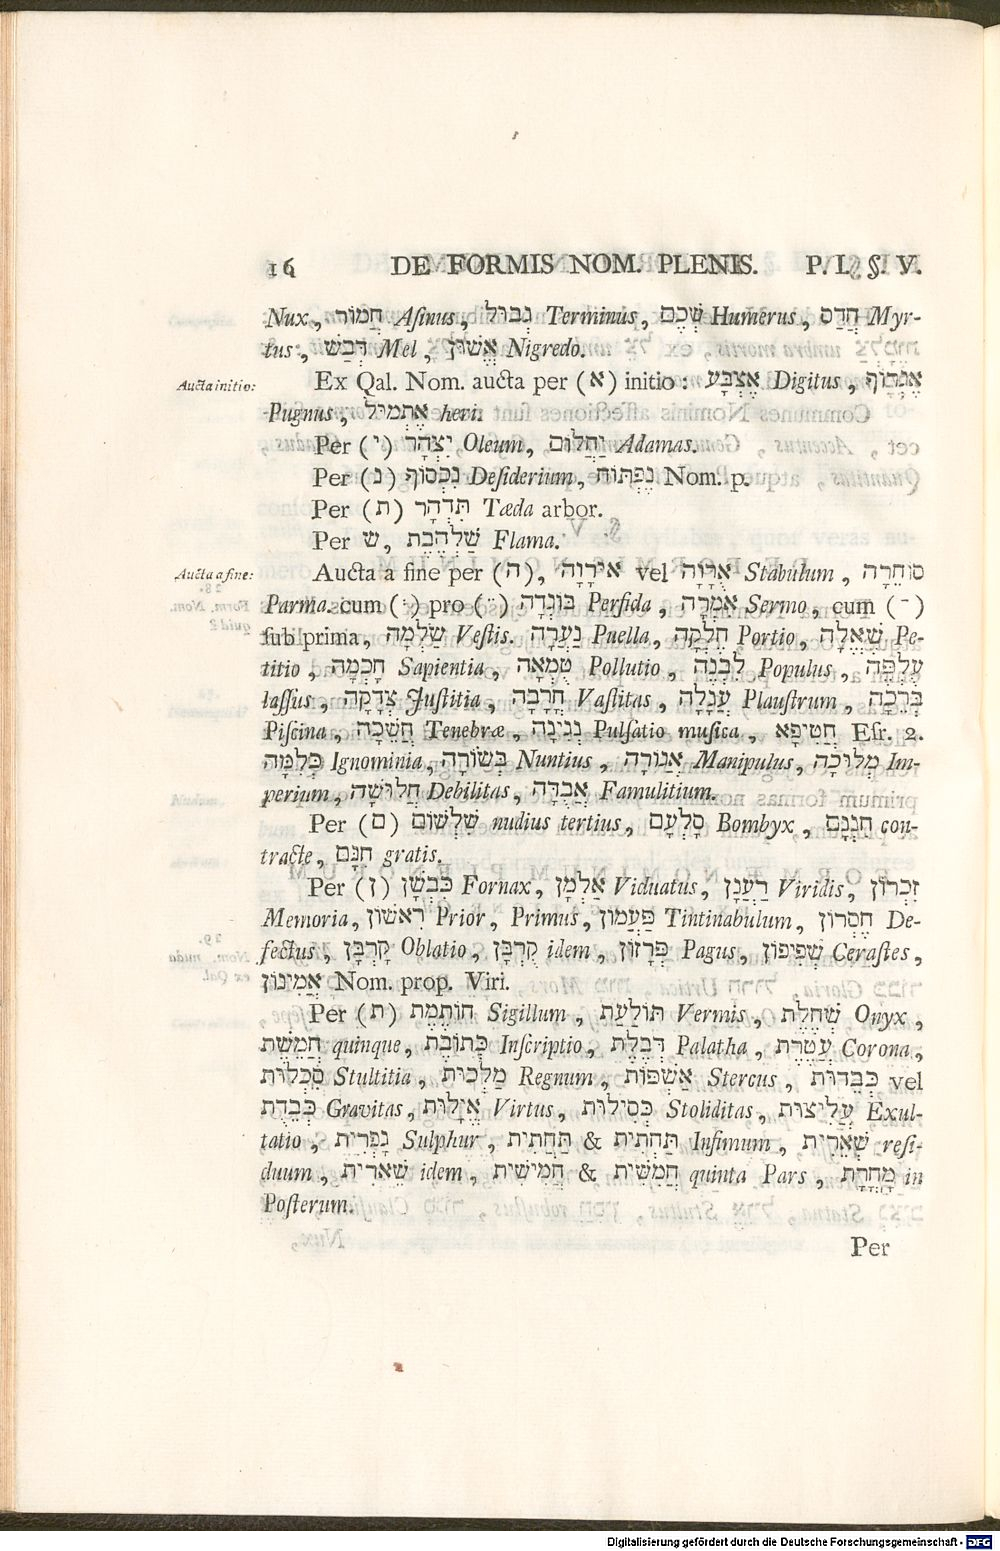 16 DE FORMIS NOM. PLENIS. P. I. §. V.
Nux, חֲמוֹר Aſinus, גְבוּל Terminus, שְׁכֶם Humerus, הֲדַס Myr-
tus, דְּבַשׁ Mel, אֱשׁוּן Nigredo.
Aucta initio: Ex Qal. Nom. aucta per (א) initio: אֶצְבָּע Digitus, אֶגְרוֹף
Pugnus, אֶתְמוּל heri.
Per (י) יִצְהָר Oleum, יַהֲלוֹם Adamas.
Per (נ) נִכְסוֹף Deſiderium, נֶפְתּוֹחַ Nom. p.
Per (ת) תִּדְהָר Tæda arbor.
Per ש, שַׁלְהֶבֶת Flama.
Aucta a fine: Aucta a fine per (ה), אֻירָוָה vel אֻרָוָה Stabulum, סוֹחֵרָה
Parma. cum (ֹ) pro (ֵ) בּוֹגְדָה Perfida, אֹמְרָה Sermo, cum (ַ)
ſub prima, שַׂלְמָה Veſtis. נַעֲרָה Puella, חֶלְקָה Portio, שְׁאֵלָה Pe-
titio, חָכְמָה Sapientia, טֻמְאָה Pollutio, לִבְנֶה Populus, עֻלְפֶּה
laſſus, צְדָקָה Juſtitia, חֳרָבָה Vaſtitas, עֲגָלָה Plauſtrum, בְּרֵכָה
Piſcina, חֲשֵׁכָה Tenebræ, נְגִינָה Pulſatio muſica, חֲטִיפָא Eſr. 2.
כְּלִמָּה Ignominia, בְּשׂוֹרָה Nuntius, אֲגוּרָה Manipulus, מְלוּכָה Im-
perium, חֲלוּשָׁה Debilitas, אֲבֻדָּה Famulitium.
Per (ם) שִׁלְשׁוֹם nudius tertius, סָלְעָם Bombyx, חִנְנָם con-
tracte, חִנָּם gratis.
Per (ן) כִּבְשָׁן Fornax, אַלְמָן Viduatus, רַעֲנָן Viridis, זִכְרוֹן
Memoria, רִאשׁוֹן Prior, Primus, פַּעֲמוֹן Tintinabulum, חֶסְרוֹן De-
fectus, קָרְבָּן Oblatio, קֻרְבָּן idem, פְּרָזוֹן Pagus, שְׁפִיפוֹן Ceraſtes,
אֲמִינוֹן Nom. prop. Viri.
Per (ת) חוֹתֶמֶת Sigillum, תּוֹלַעַת Vermis, שְׁחֵלֶת Onyx,
חֲמֵשֶׁת quinque, כְּתוֹבֶת Inſcriptio, דְּבֶלֶת Palatha, עֲטֶרֶת Corona,
סִכְלוּת Stultitia, מַלְכוּת Regnum, אַשְׁפּוֹת Stercus, כְּבֵדוּת vel
כְּבֵדֻת Gravitas, אֱיָלוּת Virtus, כְּסִילוּת Stoliditas, עֲלִיצוּת Exul-
tatio, גָּפְרִית Sulphur, תַּחֲתִית & תַּחְתִּית Infimum, שְׁאֵרִית reſi-
duum, שֵׁאֲרִית idem, חֲמִישִׁית & חֲמִשִׁית quinta Pars, מָחֳרָת in
Poſterum.
Per
Digitalisierung gefördert durch die Deutsche Forschungsgemeinschaft - DFG